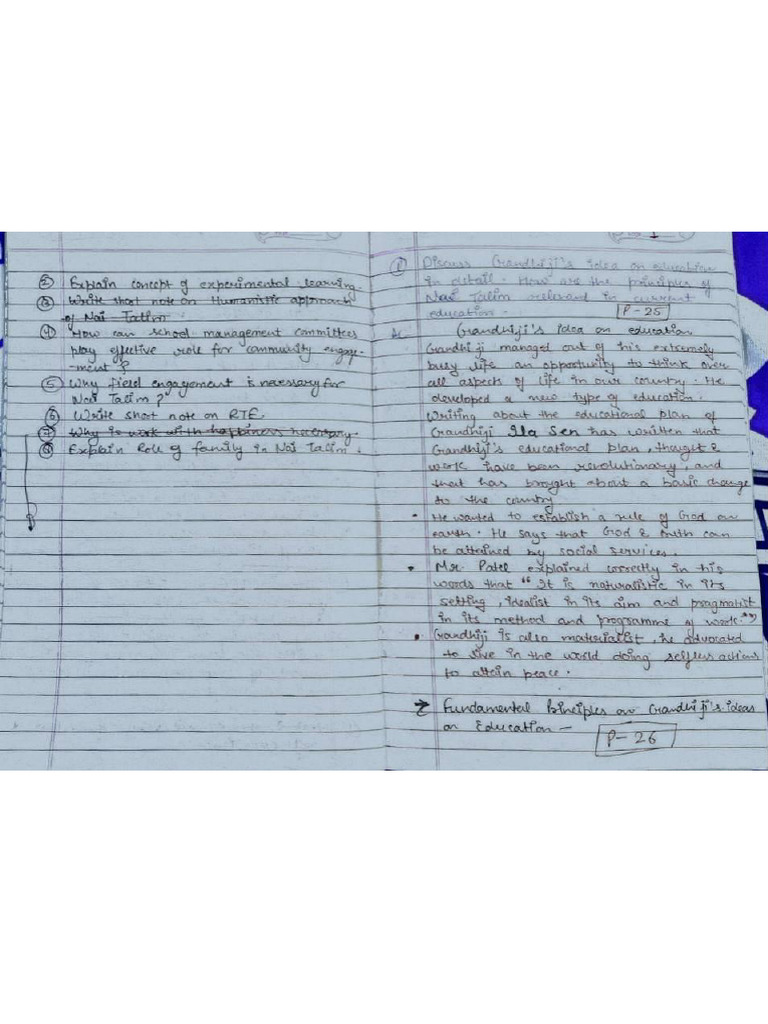 ② Explain concept of experimental learning.
③ Write short note on Humanistic approach
of Nai Talim.
④ How can school management committees
play effective role for community engage-
-ment?
⑤ Why field engagement is necessary for
Nai Talim?
⑥ Write short note on RTE.
⑦ Why is work with happiness necessary.
⑧ Explain Role of family in Nai Talim.
① Discuss Gandhiji's idea on education
in detail. How are the principles of
Nai Talim relevant in current
education. P-25
Gandhiji's idea on education
Gandhiji managed out of his extremely
busy life an opportunity to think over
all aspects of life in our country. He
developed a new type of education.
Writing about the educational plan of
Gandhiji Ila Sen has written that
Gandhiji's educational plan, thought &
work have been revolutionary, and
that has brought about a basic change
to the country
• He wanted to establish a rule of God on
earth. He says that God & truth can
be attained by social services.
• Mr. Patel explained correctly in his
words that "It is naturalistic in its
setting, idealist in its aim and pragmatist
in its method and programme of work."
• Gandhiji is also materialist, he advocated
to live in the world doing selfless actions
to attain peace.
→ Fundamental Principles on Gandhiji's ideas
on Education — P-26